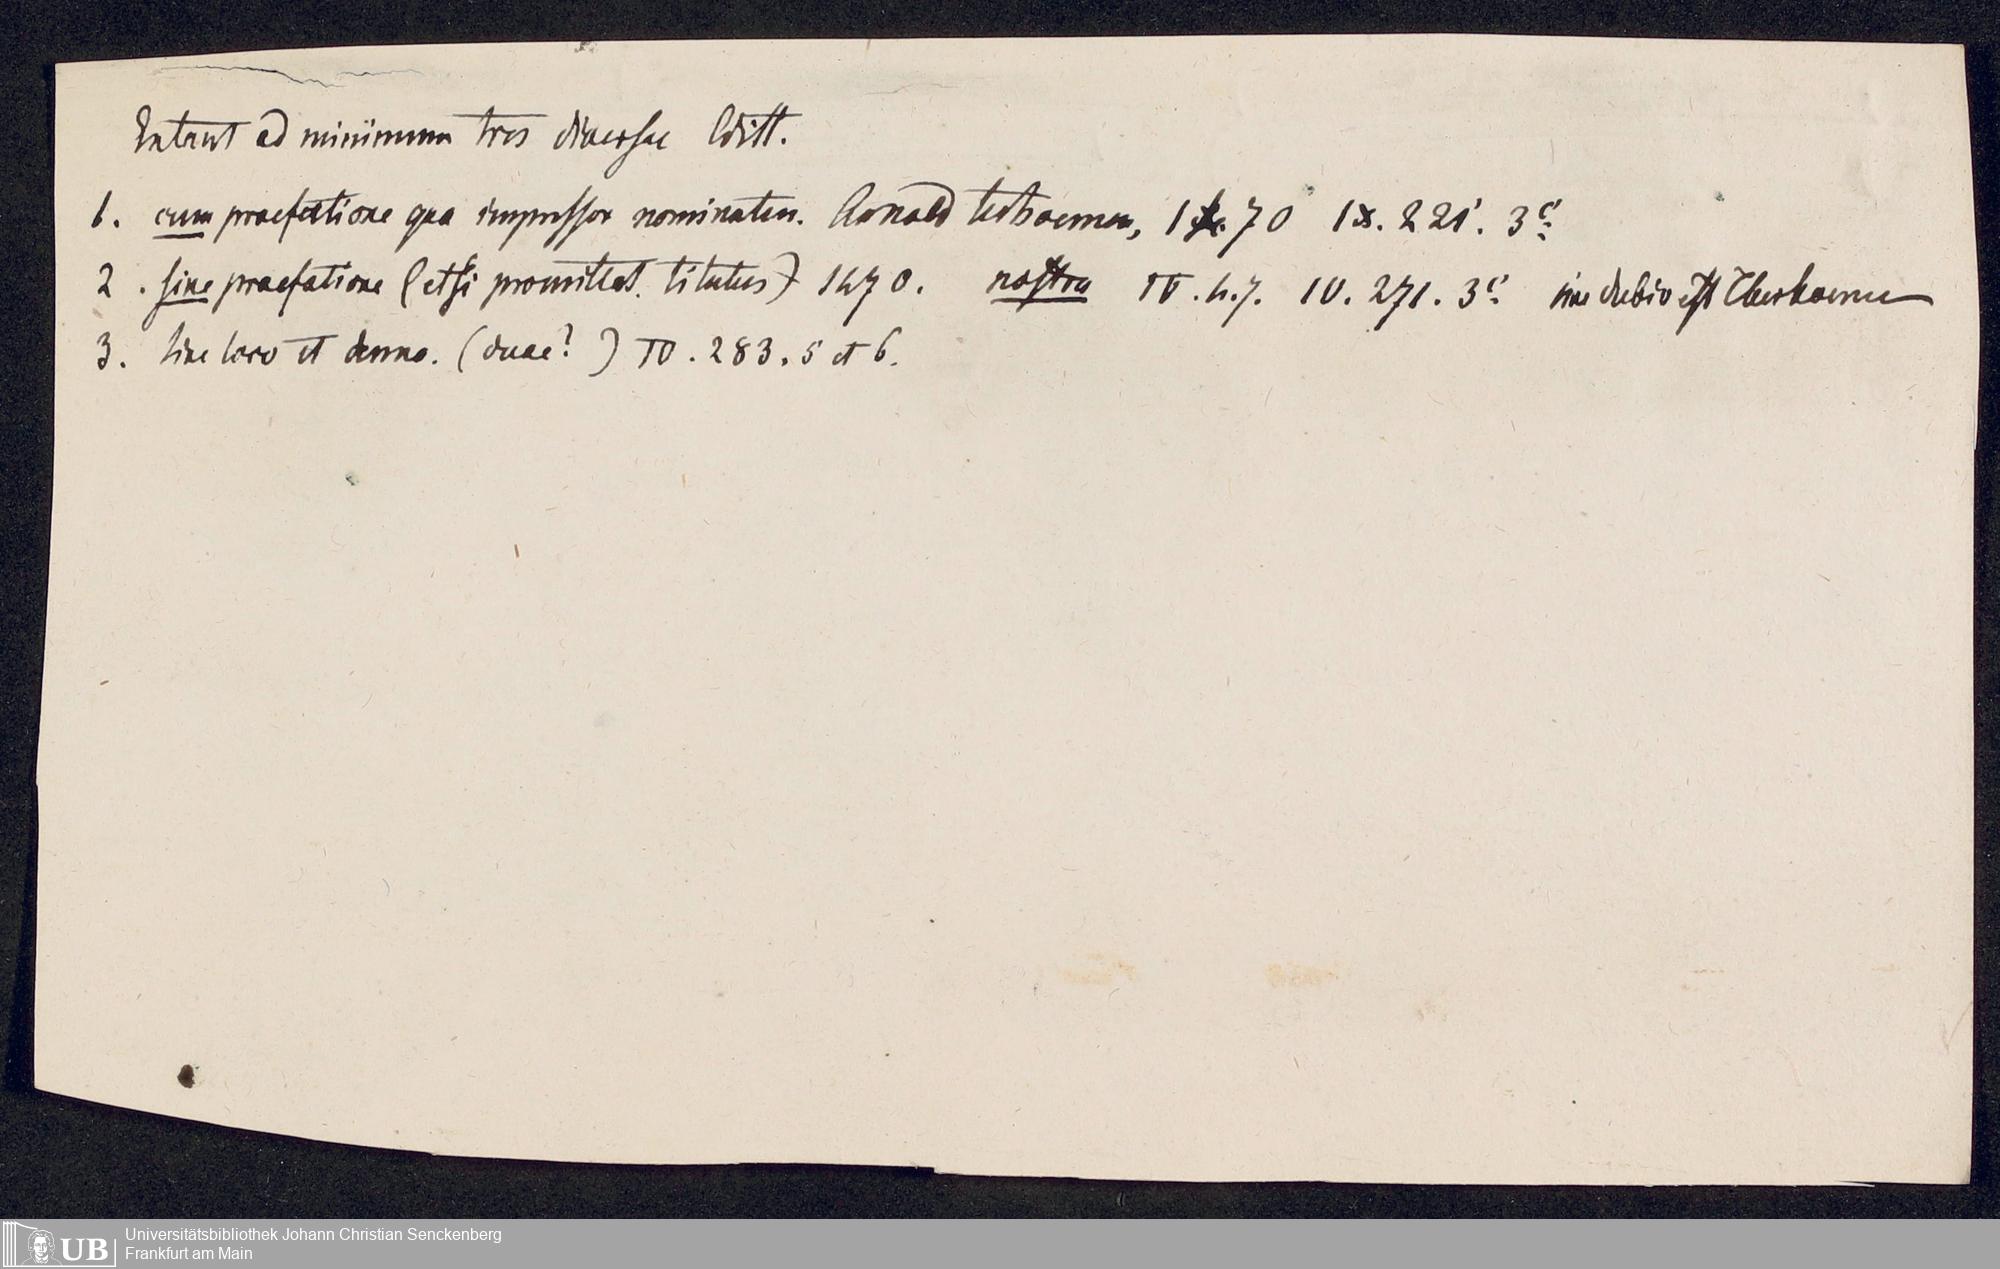 Extant ad minimum tres diversae Editt.
1. cum praefatione qua impressor nominatur. Arnold terhoernen, 1470 IX. 221. 3
2. sine praefatione (etsi promittat titulus) 1470. nostra IV. 4.7. IV. 271. 3 sine dubio est Therhoernen
3. sine loco et anno. (duae?) IV. 283. 5 et 6.
Universitätsbibliothek Johann Christian Senckenberg
Frankfurt am Main
UB